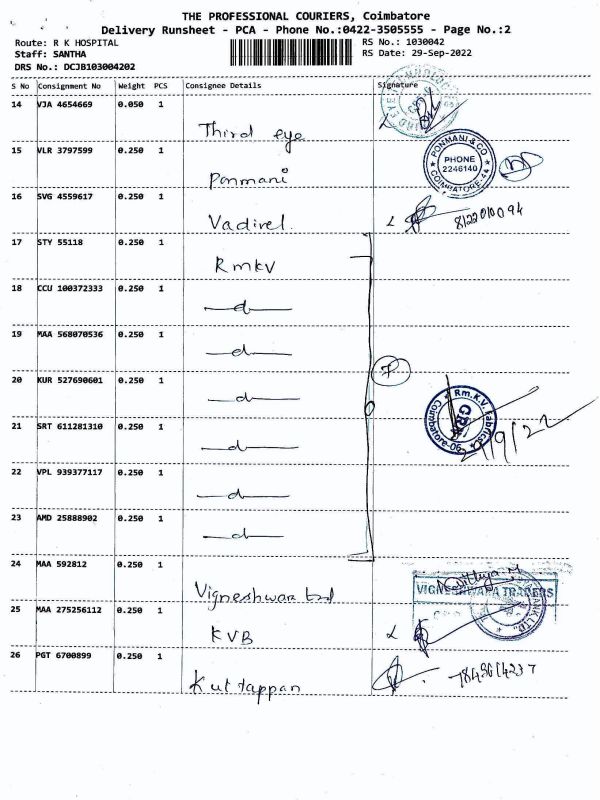 THE PROFESSIONAL COURIERS, Coimbatore
Delivery Runsheet - PCA - Phone No.:0422-3505555 - Page No.:2
Route: R K HOSPITAL
RS No.: 1030042
Staff: SANTHA
RS Date: 29-Sep-2022
DRS No.: DCJB103004202
S No Consignment No Weight PCS Consignee Details Signature
14 VJA 4654669 0.050 1
Third eye
15 VLR 3797599 0.250 1
Ponmani
PONMANI & CO
PHONE
2246140
COIMBATORE-44
16 SVG 4559617 0.250 1
Vadivel
8122010094
17 STY 55118 0.250 1
Rmkv
18 CCU 100372333 0.250 1
d
19 MAA 568070536 0.250 1
d
7
20 KUR 527690601 0.250 1
d
Rm.K.V. Fabrics
Coimbatore-06
21 SRT 611281310 0.250 1
d
29/9/22
22 VPL 939377117 0.250 1
d
23 AMD 25888902 0.250 1
d
24 MAA 592812 0.250 1
Vigneshwar trd
VIGNESHWARA TRADERS
BANK LTD.
25 MAA 275256112 0.250 1
KVB
26 PGT 6700899 0.250 1
Kuttappan